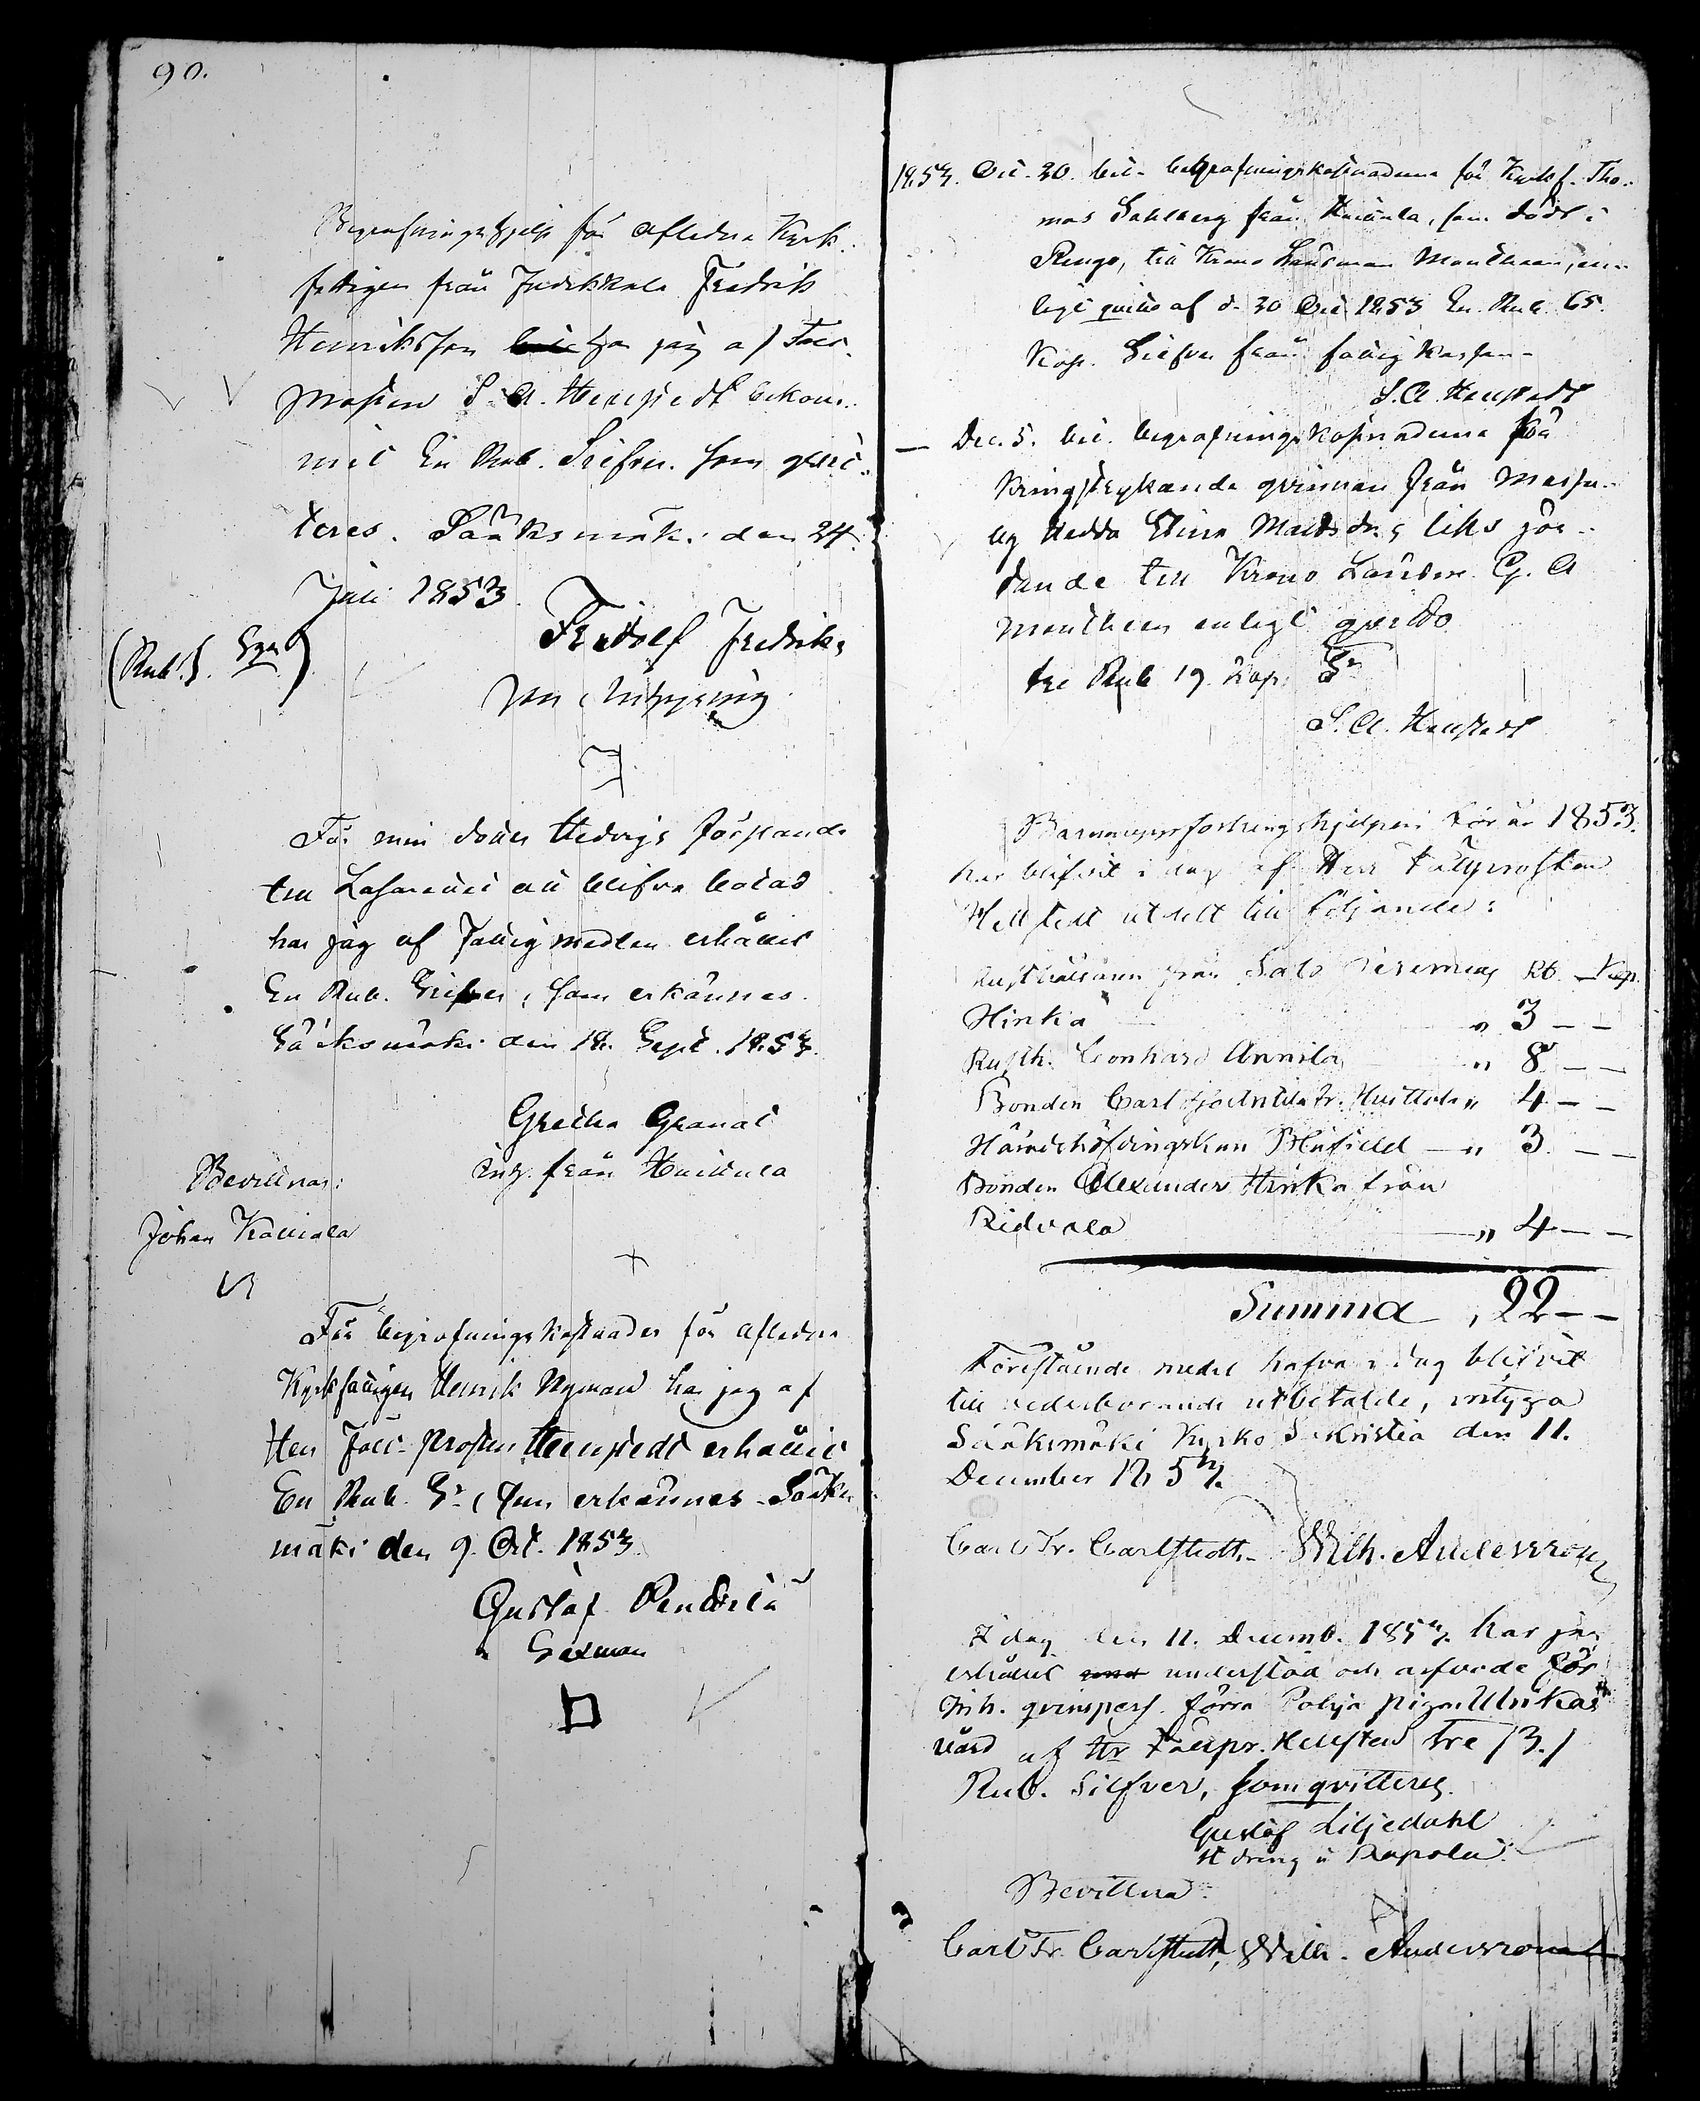 90.
Begrafningshjelp för aflidne Kyrk-
fattigen från Jutikkala Fredrik
Henriksson har jag af Fält-
prosten S. A. Hellstedt bekom-
mit En Rub. Silfver. som qvit-
teres. Sääksmäki den 24.
Juli 1853.
Fridolf Fredriks
son
(Rub. S. Egr)
För min dotter Hedvigs forslande
till Lasarettet att blifva botad
har jag af Fattigmedlen erhållit
En Rub. Silfver, som erkännes.
Sääksmäki den 18. Sept. 1853.
Gretha Granat
inh. från Huittula
Bevittnar:
Johan Kauiala
För begrafningskostnader för aflidne
Kyrkfattigen Henrik Nyman har jag af
Herr Fält-Prosten Hellstedt erhållit
En Rub. Sr, som erkännes. Sääks-
mäki den 9. Oct. 1853.
Gustaf Penttilä
Sexman
1853. Oct. 30. bet. begrafningskostnaderna för Kyrkf. Tho-
mas Sahlberg från Huittula, som dödt i
Rengo, till Krono Länsman Montheen, en-
ligt qvitto af d. 30 Oct 1853 En. Rub. 65.
Kop. Silfver från fattig kassan.
S. A. Hellstedt
— Dec. 5. bet. begrafningskostnaderna för
kringstrykande qvinnan från Messu-
by Hedda Stina Matsdr,s liks jor-
dande till Krono Länsm. G. A
Montheen enligt qvitto
tre Rub 19. Kop. Sr
S. A. Hellstedt
Barnuppfostringshjelpen för år 1853.
har blifvit i dag af Herr Fältprosten
Hellstedt utdelt till följande:
Rusthållaren från Salo Rb. Kop.
Hinka " 3 — —
Rusth. Leonhard Annila " 8 — —
Bonden Carl fr. Huittula " 4 — —
Häradshöfdingskan Blåfield — " 3 — —
Bonden Alexander Hinka från
Ridvala — " 4 — —
Summa , 22 — —
Förestående medel hafva i dag blifvit
till vederborande utbetalde, intyga
Sääksmäki Kyrko Sakristia den 11.
December 1853.
Carl Fr. Carlstedt. Wilh. Andersson
I dag den 11. Decemb. 1853. har jag
erhållit understöd och arfvode för
Inh. qvinspers. förra Pohja pigan Ulrikas
vård af Hr Fältpr. Hellstedt Tre /3./
Rub. Silfver, som qvitteres.
Gustaf Liljedahl
st dreng å Rapola
Bevittna:
Carl Fr. Carlstedt, Wilh. Andersson